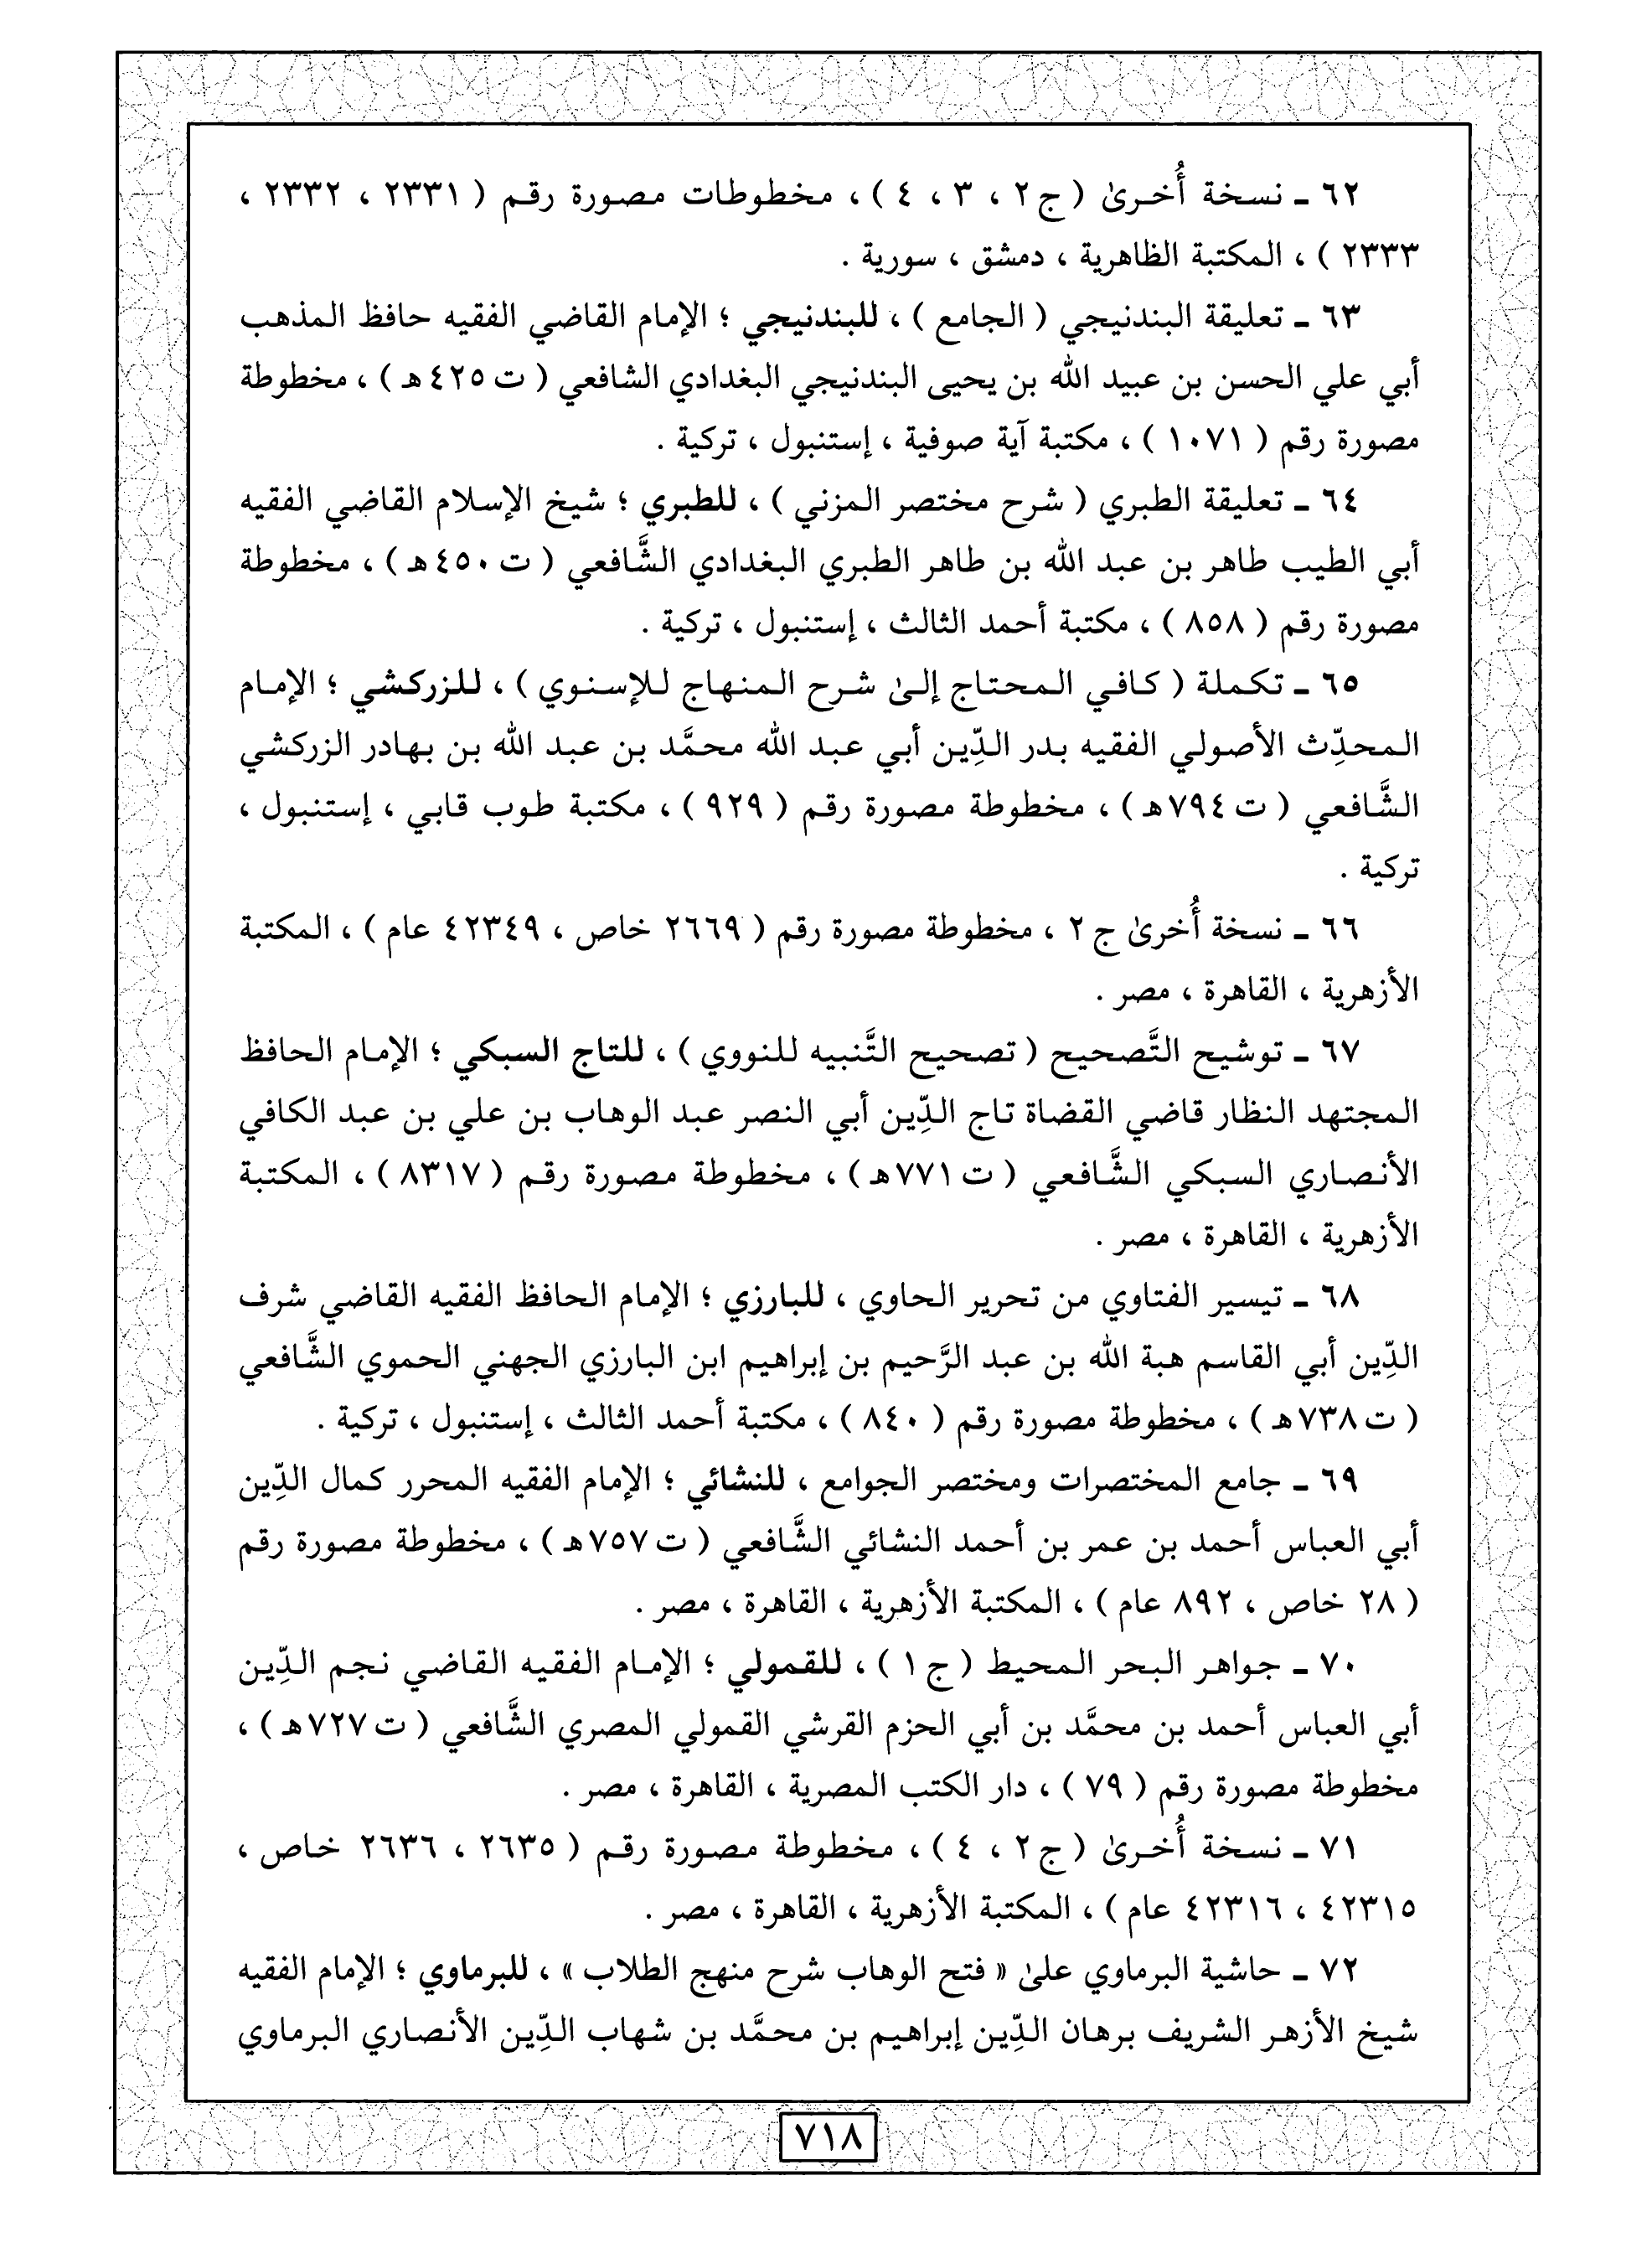 ٦٢ ـ نسخة أُخرىٰ ( ج ٢ ، ٣ ، ٤ ) ، مخطوطات مصورة رقم ( ٢٣٣١ ، ٢٣٣٢ ،
٢٣٣٣ ) ، المكتبة الظاهرية ، دمشق ، سورية .
٦٣ ـ تعليقة البندنيجي ( الجامع ) ، للبندنيجي ؛ الإمام القاضي الفقيه حافظ المذهب
أبي علي الحسن بن عبيد الله بن يحيى البندنيجي البغدادي الشافعي ( ت ٤٢٥هـ ) ، مخطوطة
مصورة رقم ( ١٠٧١ ) ، مكتبة آية صوفية ، إستنبول ، تركية .
٦٤ ـ تعليقة الطبري ( شرح مختصر المزني ) ، للطبري ؛ شيخ الإسلام القاضي الفقيه
أبي الطيب طاهر بن عبد الله بن طاهر الطبري البغدادي الشَّافعي ( ت ٤٥٠هـ ) ، مخطوطة
مصورة رقم ( ٨٥٨ ) ، مكتبة أحمد الثالث ، إستنبول ، تركية .
٦٥ ـ تكملة ( كافي المحتاج إلىٰ شرح المنهاج للإسنوي ) ، للزركشي ؛ الإمام
المحدِّث الأصولي الفقيه بدر الدِّين أبي عبد الله محمَّد بن عبد الله بن بهادر الزركشي
الشَّافعي ( ت ٧٩٤هـ ) ، مخطوطة مصورة رقم ( ٩٢٩ ) ، مكتبة طوب قابي ، إستنبول ،
تركية .
٦٦ ـ نسخة أُخرىٰ ج ٢ ، مخطوطة مصورة رقم ( ٢٦٦٩ خاص ، ٤٢٣٤٩ عام ) ، المكتبة
الأزهرية ، القاهرة ، مصر .
٦٧ ـ توشيح التَّصحيح ( تصحيح التَّنبيه للنووي ) ، للتاج السبكي ؛ الإمام الحافظ
المجتهد النظار قاضي القضاة تاج الدِّين أبي النصر عبد الوهاب بن علي بن عبد الكافي
الأنصاري السبكي الشَّافعي ( ت ٧٧١هـ ) ، مخطوطة مصورة رقم ( ٨٣١٧ ) ، المكتبة
الأزهرية ، القاهرة ، مصر .
٦٨ ـ تيسير الفتاوي من تحرير الحاوي ، للبارزي ؛ الإمام الحافظ الفقيه القاضي شرف
الدِّين أبي القاسم هبة الله بن عبد الرَّحيم بن إبراهيم ابن البارزي الجهني الحموي الشَّافعي
( ت ٧٣٨هـ ) ، مخطوطة مصورة رقم ( ٨٤٠ ) ، مكتبة أحمد الثالث ، إستنبول ، تركية .
٦٩ ـ جامع المختصرات ومختصر الجوامع ، للنشائي ؛ الإمام الفقيه المحرر كمال الدِّين
أبي العباس أحمد بن عمر بن أحمد النشائي الشَّافعي ( ت ٧٥٧هـ ) ، مخطوطة مصورة رقم
( ٢٨ خاص ، ٨٩٢ عام ) ، المكتبة الأزهرية ، القاهرة ، مصر .
٧٠ ـ جواهر البحر المحيط ( ج ١ ) ، للقمولي ؛ الإمام الفقيه القاضي نجم الدِّين
أبي العباس أحمد بن محمَّد بن أبي الحزم القرشي القمولي المصري الشَّافعي ( ت ٧٢٧هـ ) ،
مخطوطة مصورة رقم ( ٧٩ ) ، دار الكتب المصرية ، القاهرة ، مصر .
٧١ ـ نسخة أُخرىٰ ( ج ٢ ، ٤ ) ، مخطوطة مصورة رقم ( ٢٦٣٥ ، ٢٦٣٦ خاص ،
٤٢٣١٥ ، ٤٢٣١٦ عام ) ، المكتبة الأزهرية ، القاهرة ، مصر .
٧٢ ـ حاشية البرماوي علىٰ « فتح الوهاب شرح منهج الطلاب » ، للبرماوي ؛ الإمام الفقيه
شيخ الأزهر الشريف برهان الدِّين إبراهيم بن محمَّد بن شهاب الدِّين الأنصاري البرماوي
٧١٨